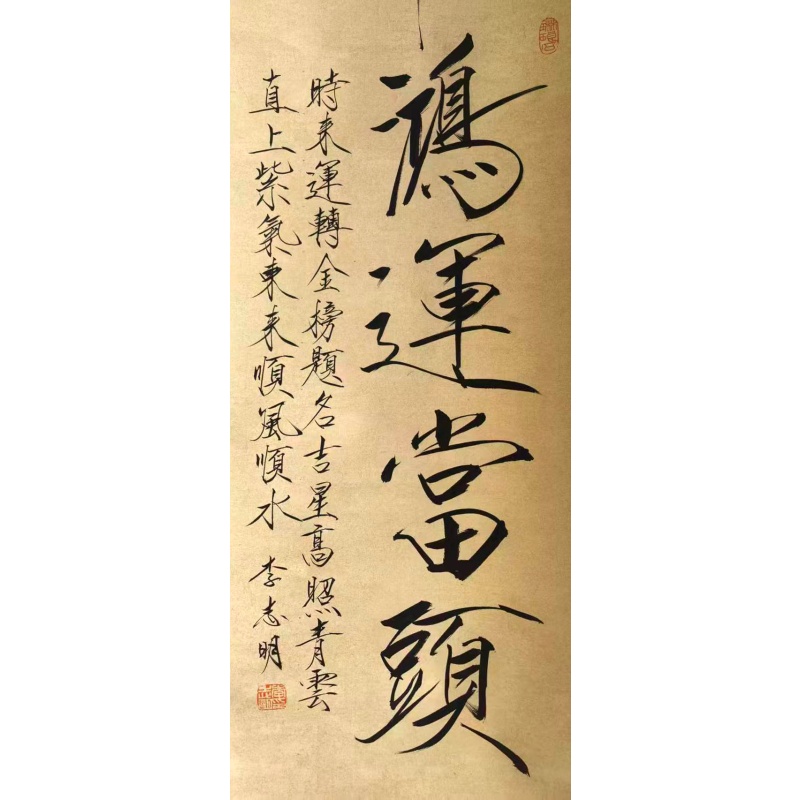 鴻運當頭
時来運轉金榜題名吉星高照青雲
直上紫氣東来順風順水
李志明